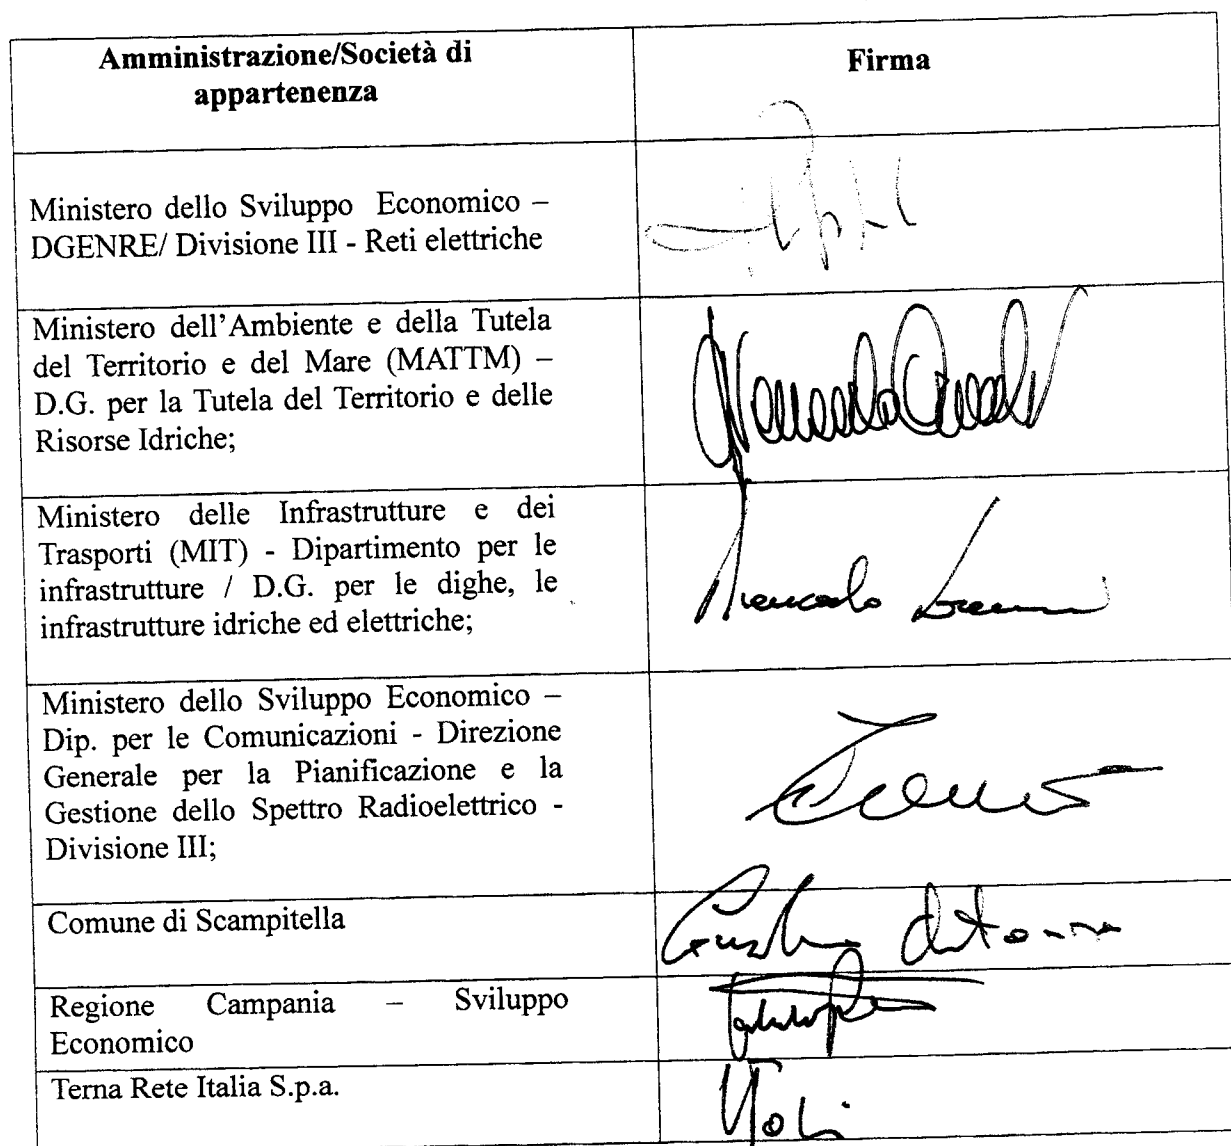 Amministrazione/Società di
appartenenza
Firma
Ministero dello Sviluppo Economico –
DGENRE/ Divisione III - Reti elettriche
Ministero dell'Ambiente e della Tutela
del Territorio e del Mare (MATTM) –
D.G. per la Tutela del Territorio e delle
Risorse Idriche;
Ministero delle Infrastrutture e dei
Trasporti (MIT) - Dipartimento per le
infrastrutture / D.G. per le dighe, le
infrastrutture idriche ed elettriche;
Ministero dello Sviluppo Economico –
Dip. per le Comunicazioni - Direzione
Generale per la Pianificazione e la
Gestione dello Spettro Radioelettrico -
Divisione III;
Comune di Scampitella
Regione Campania – Sviluppo
Economico
Terna Rete Italia S.p.a.